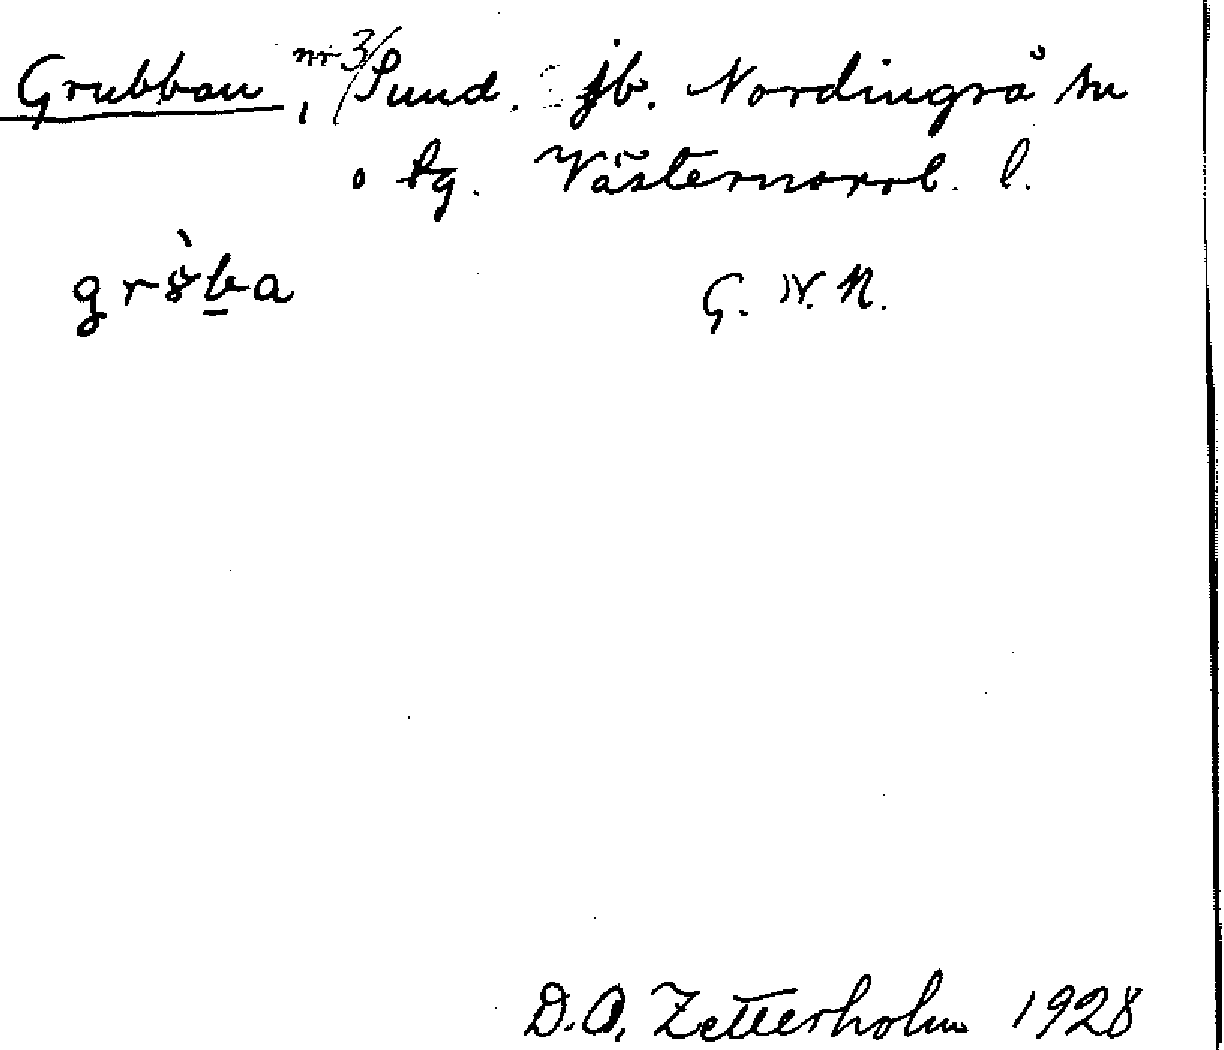 Grubban, nr 3/ Sund. jb. Nordingrå sn
o tg. Västernorrl. l.
grò̈ba G. W. N.
D.O. Zetterholm 1928